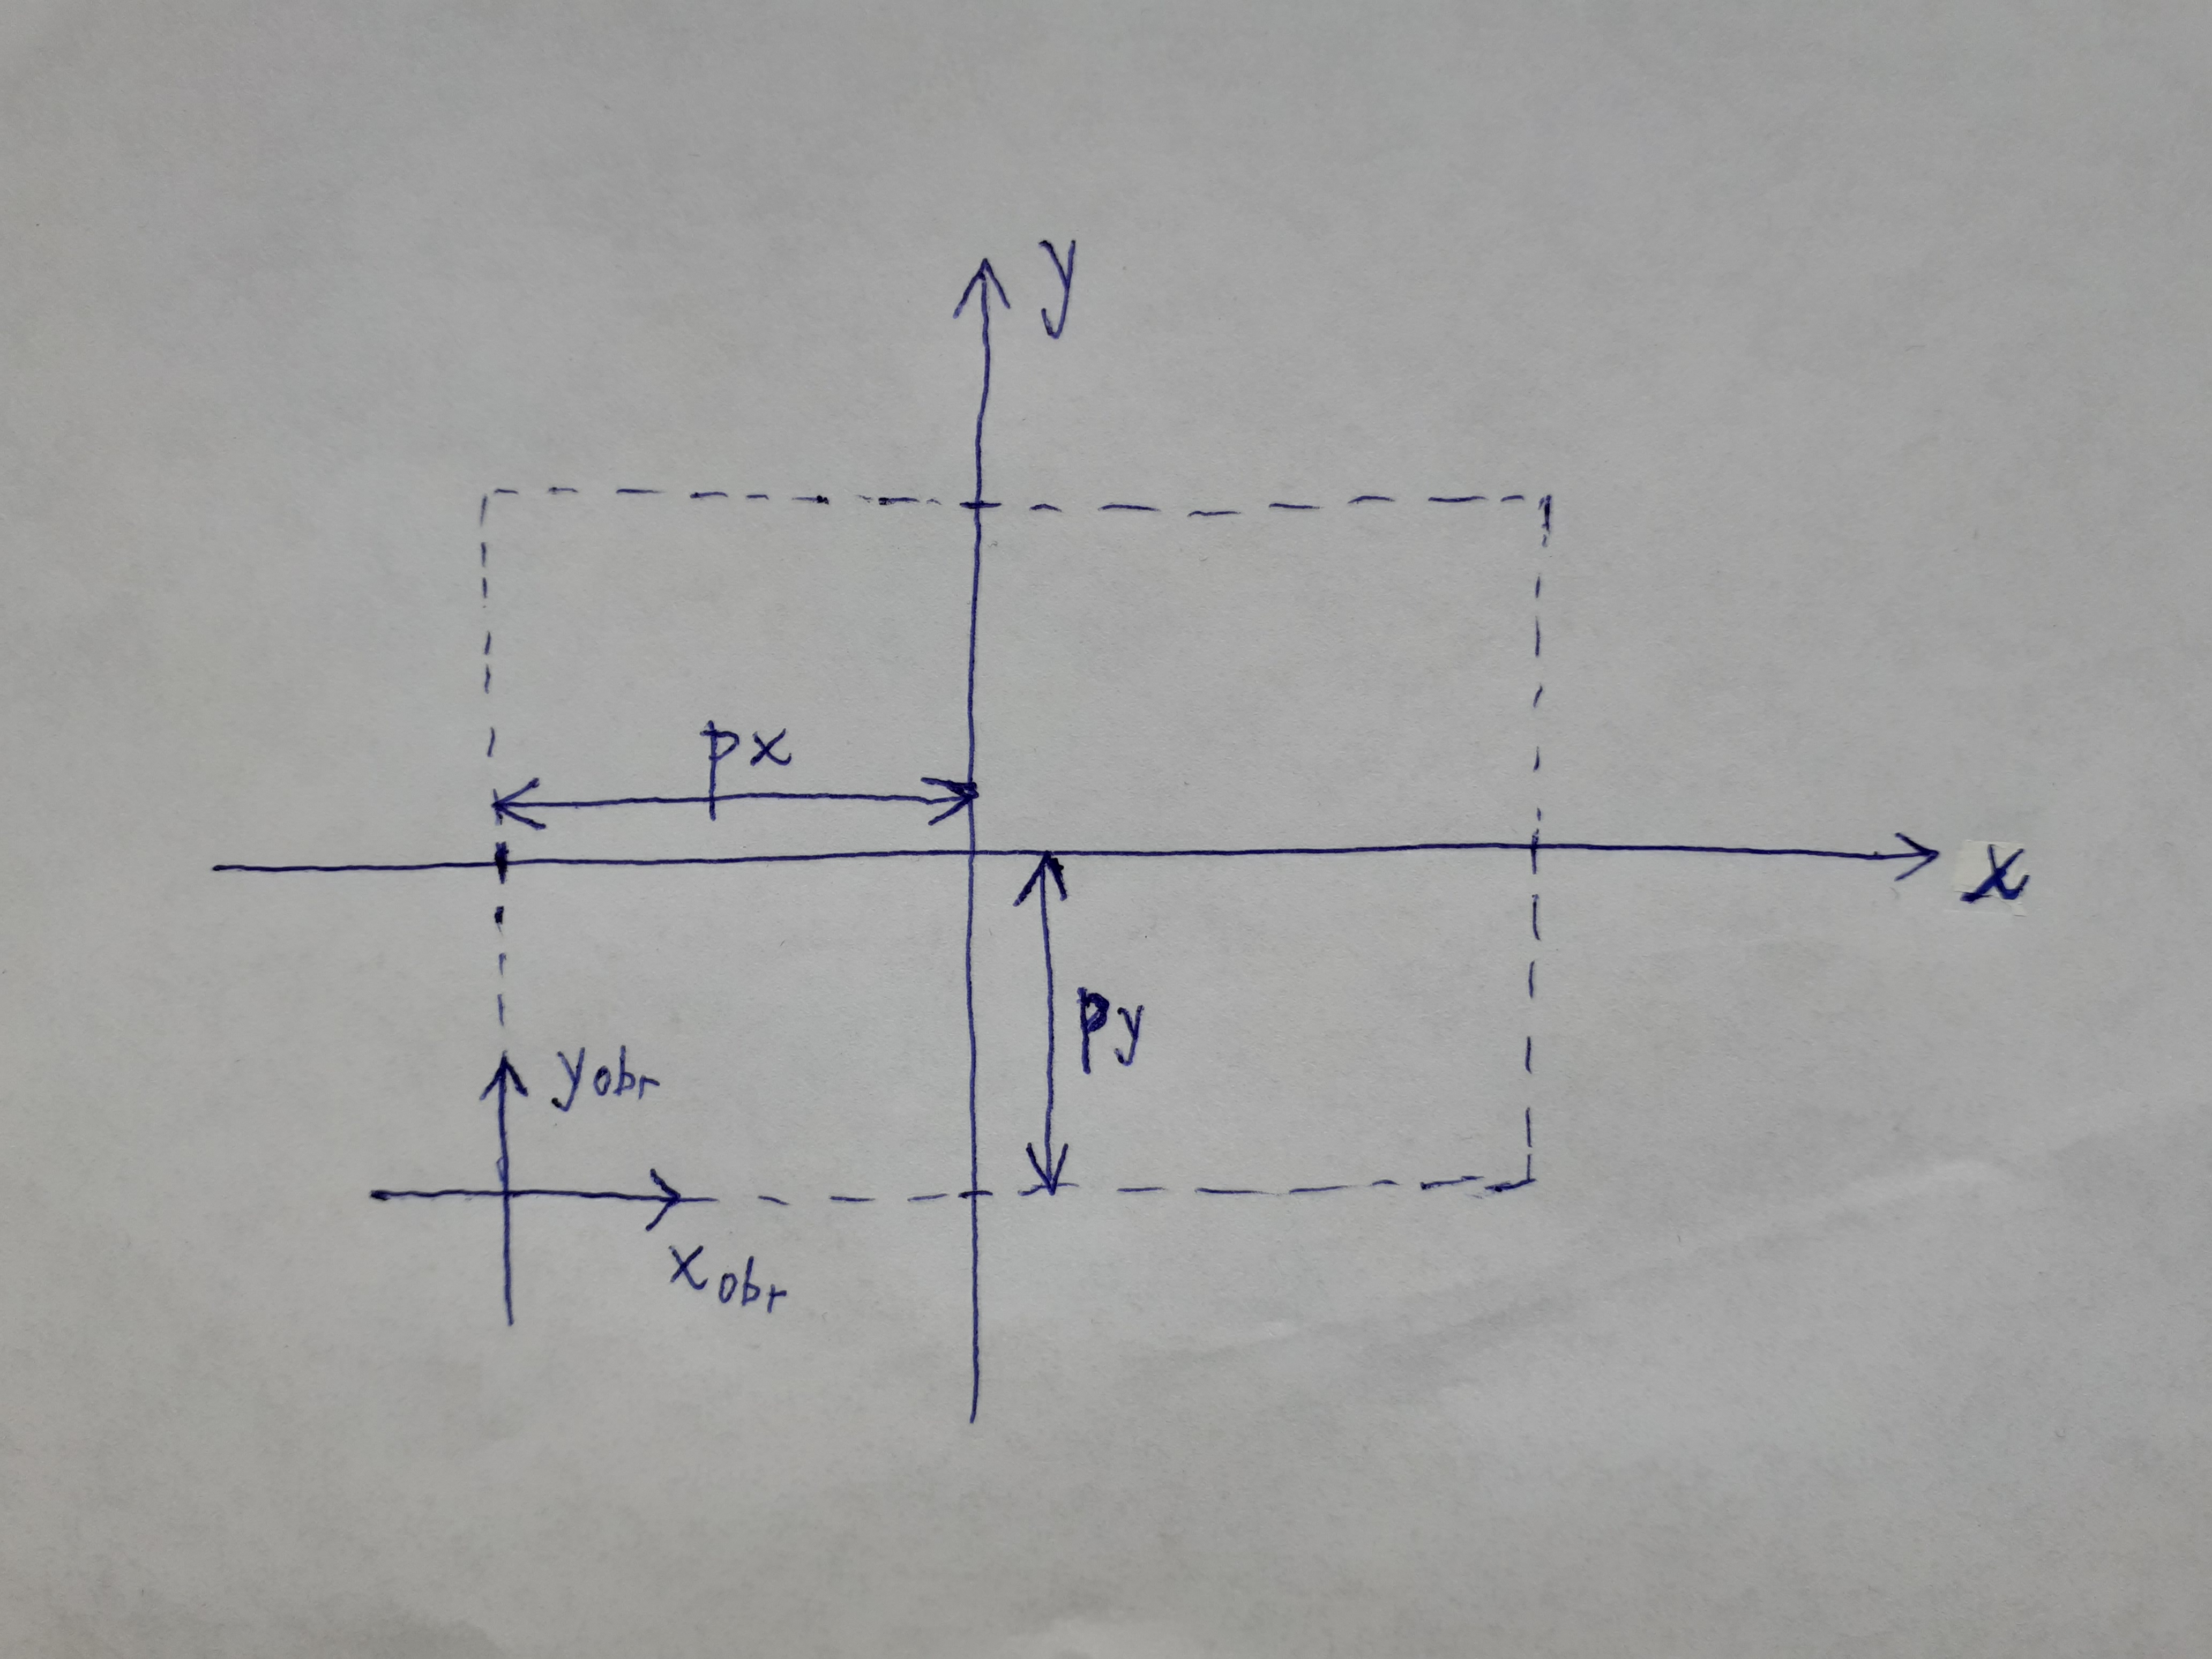 y
px
x
py
yobr
xobr